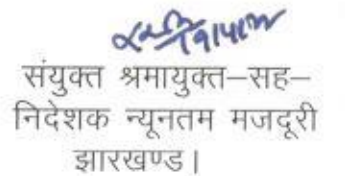 संयुक्त श्रमायुक्त–सह–
निदेशक न्यूनतम मजदूरी
झारखण्ड।